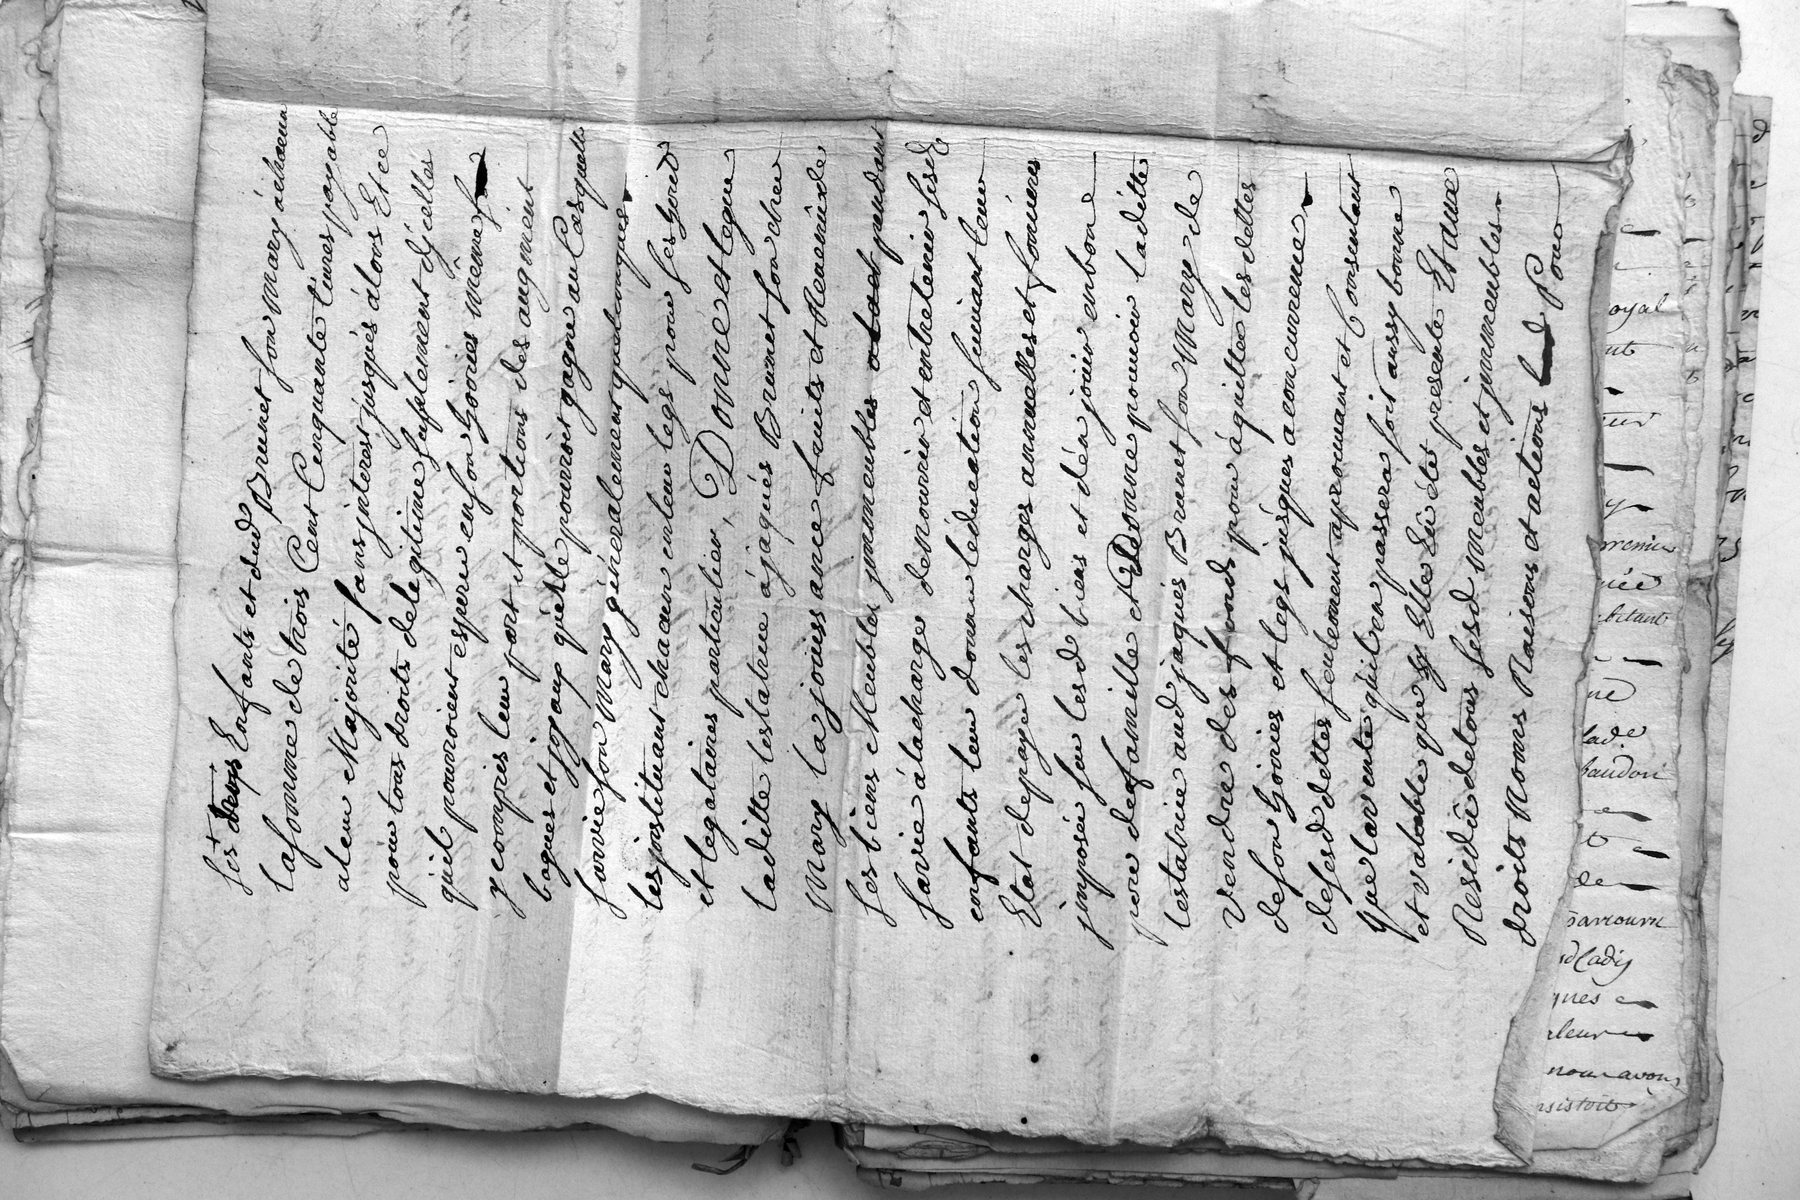 ses deux Enfants et dud Brunet son Mary a chacun
la somme de trois Cent Cinquante livres payable
a leur Majorité sans jnterest jusques alors Et ce
pour tous droits de legitime suplement d'jcelles
quils pourroient esperer en son hoiries même
y compris leur part et portions des augment
bagues et joyaux quelle pourroit gagner au Cas quelle
survie son Mary generalement quelconques
les jnstituant chacun en leur legs pour ses hoirs
et legataires particulier, Donne et legue
laditte testatrice a jaques Brunet son cher
Mary la jouissance fruits et Revenû de
ses biens Meubles jmmeubles pendant
sa vie a la charge de nourrir et entretenir sesd
enfants leur donner l'éducation suivant leur
Etat de payer les charges annuelles et foncieres
jmposée sur lesd biens et d'en jouir en bon
pere de famille et Donne pouvoir laditte
testatrice aud jaques Brunet son Mary de
vendre des fonds pour aquitter les dettes
de son hoiries et legs jusques a concurrence
de sesd dettes seulement aprouvant et Consentant
que la vente quil en passera soit aussy bonne
et valable que sy Elle Eu êtes presente Et aux
Residû de tous sesd meubles et jmmeubles
droits Noms Raisons et actions Pour
oyal
nt
remier
bitant
lade
baudon
de
parcouru
sd Ladij
ques
aleur
nous avons
sistoit